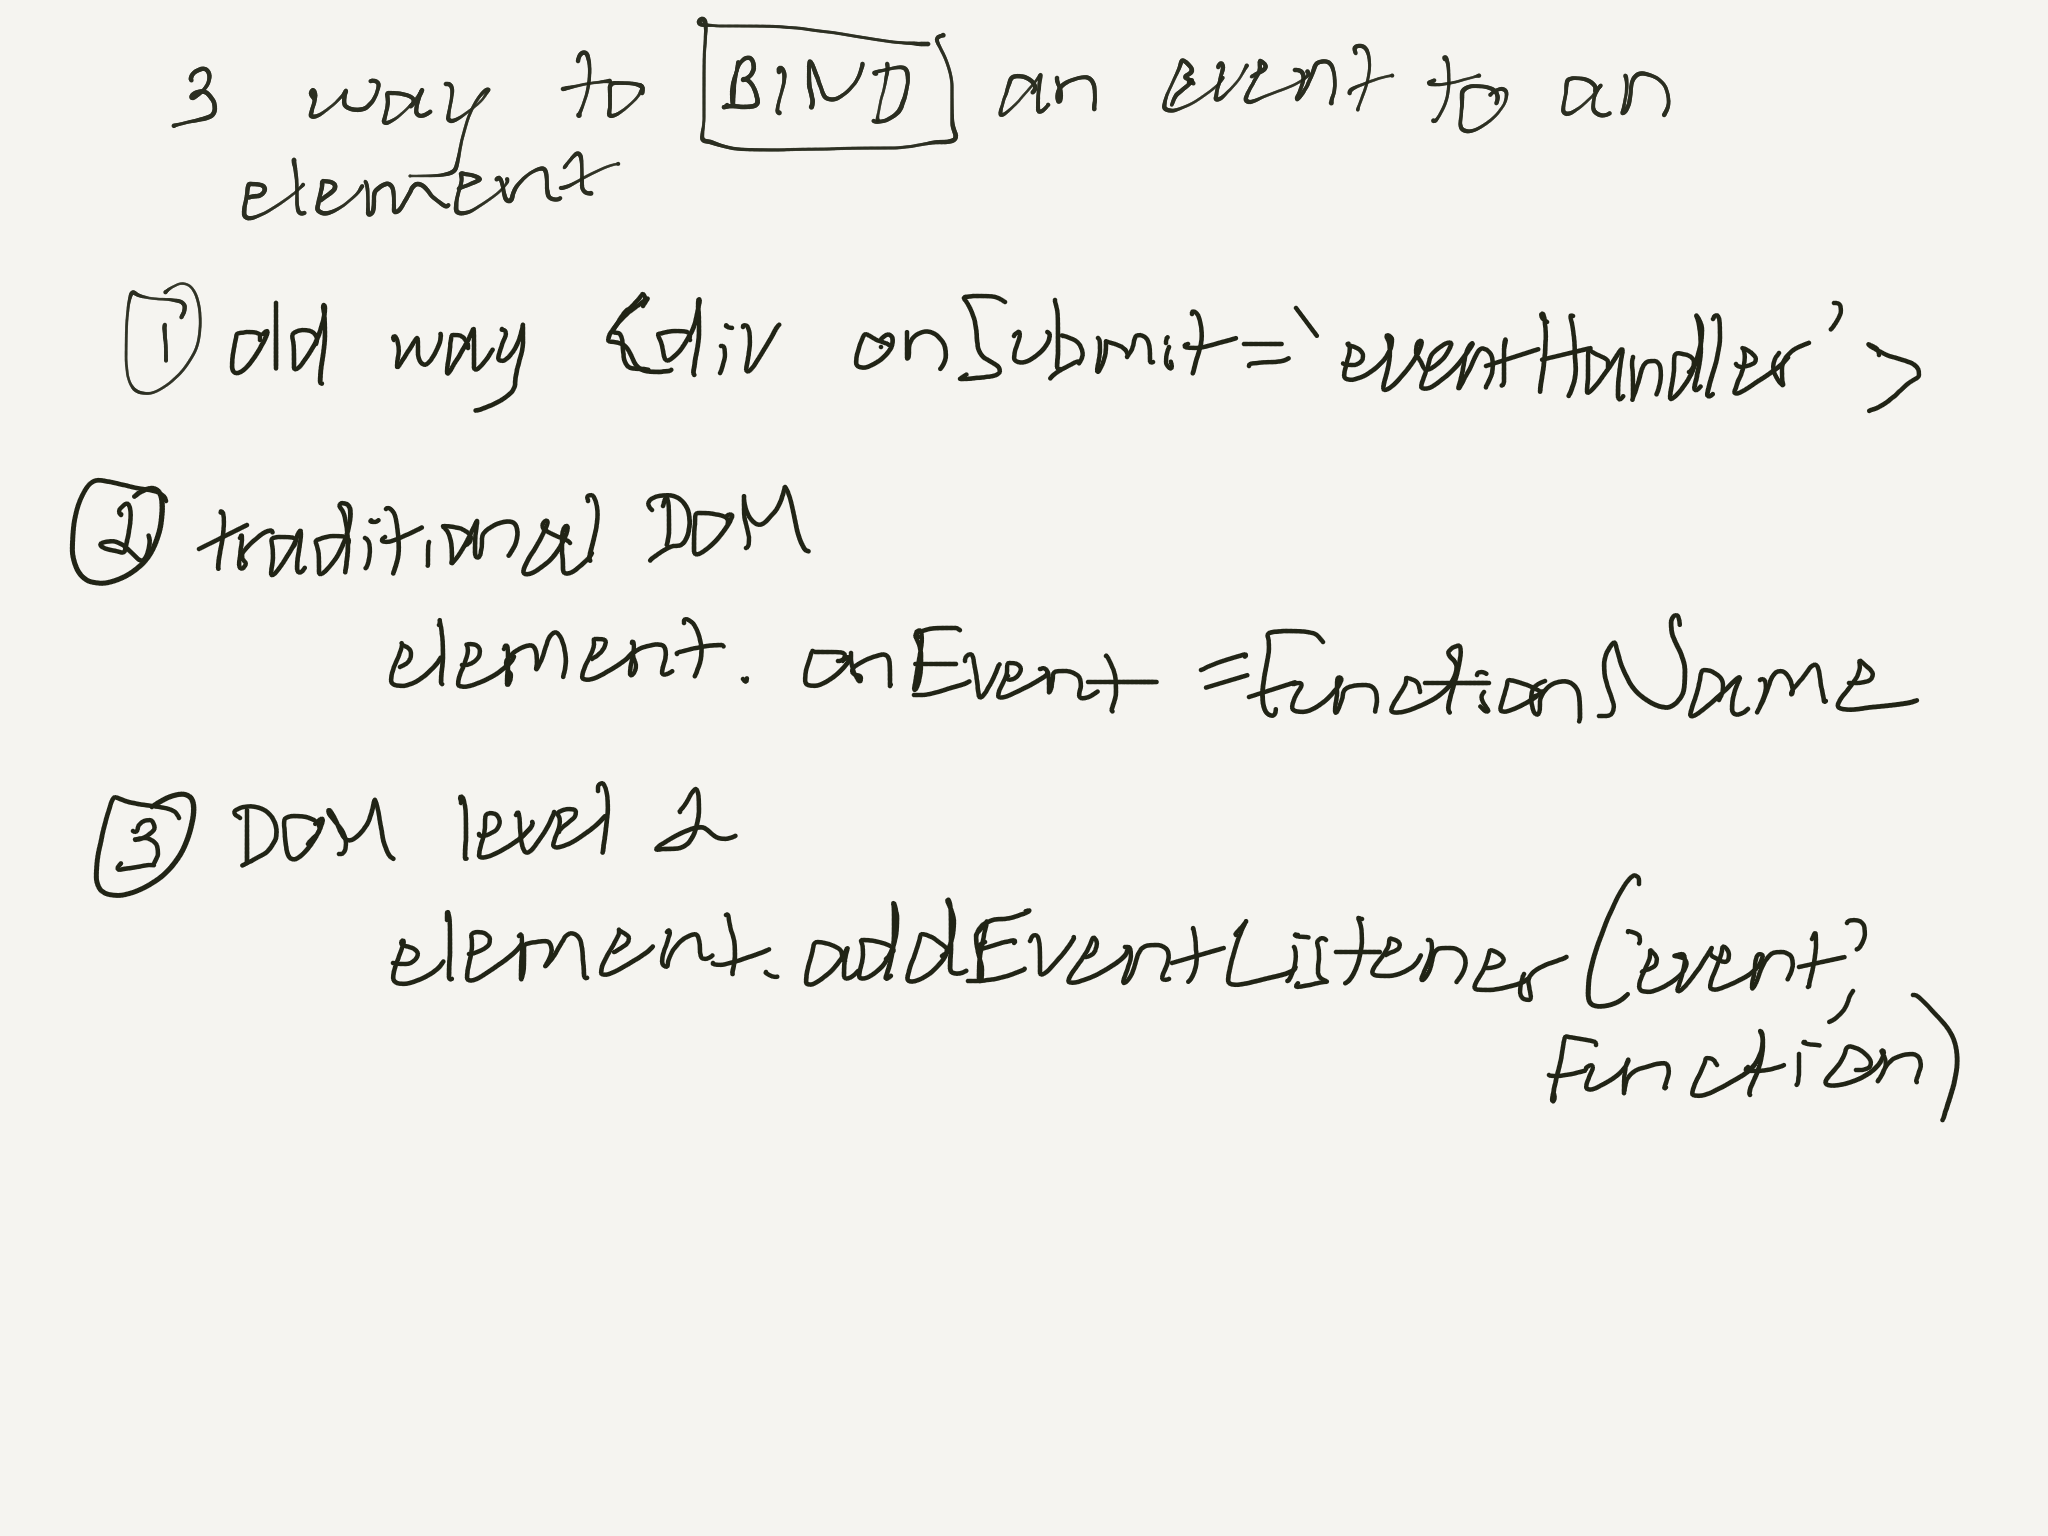 3 way to BIND an event to an
element
1 old way <div onSubmit=‘eventHandler’>
2 traditional DOM
element. onEvent =FunctionName
3 DOM level 2
element.addEventListener('event',
Function)